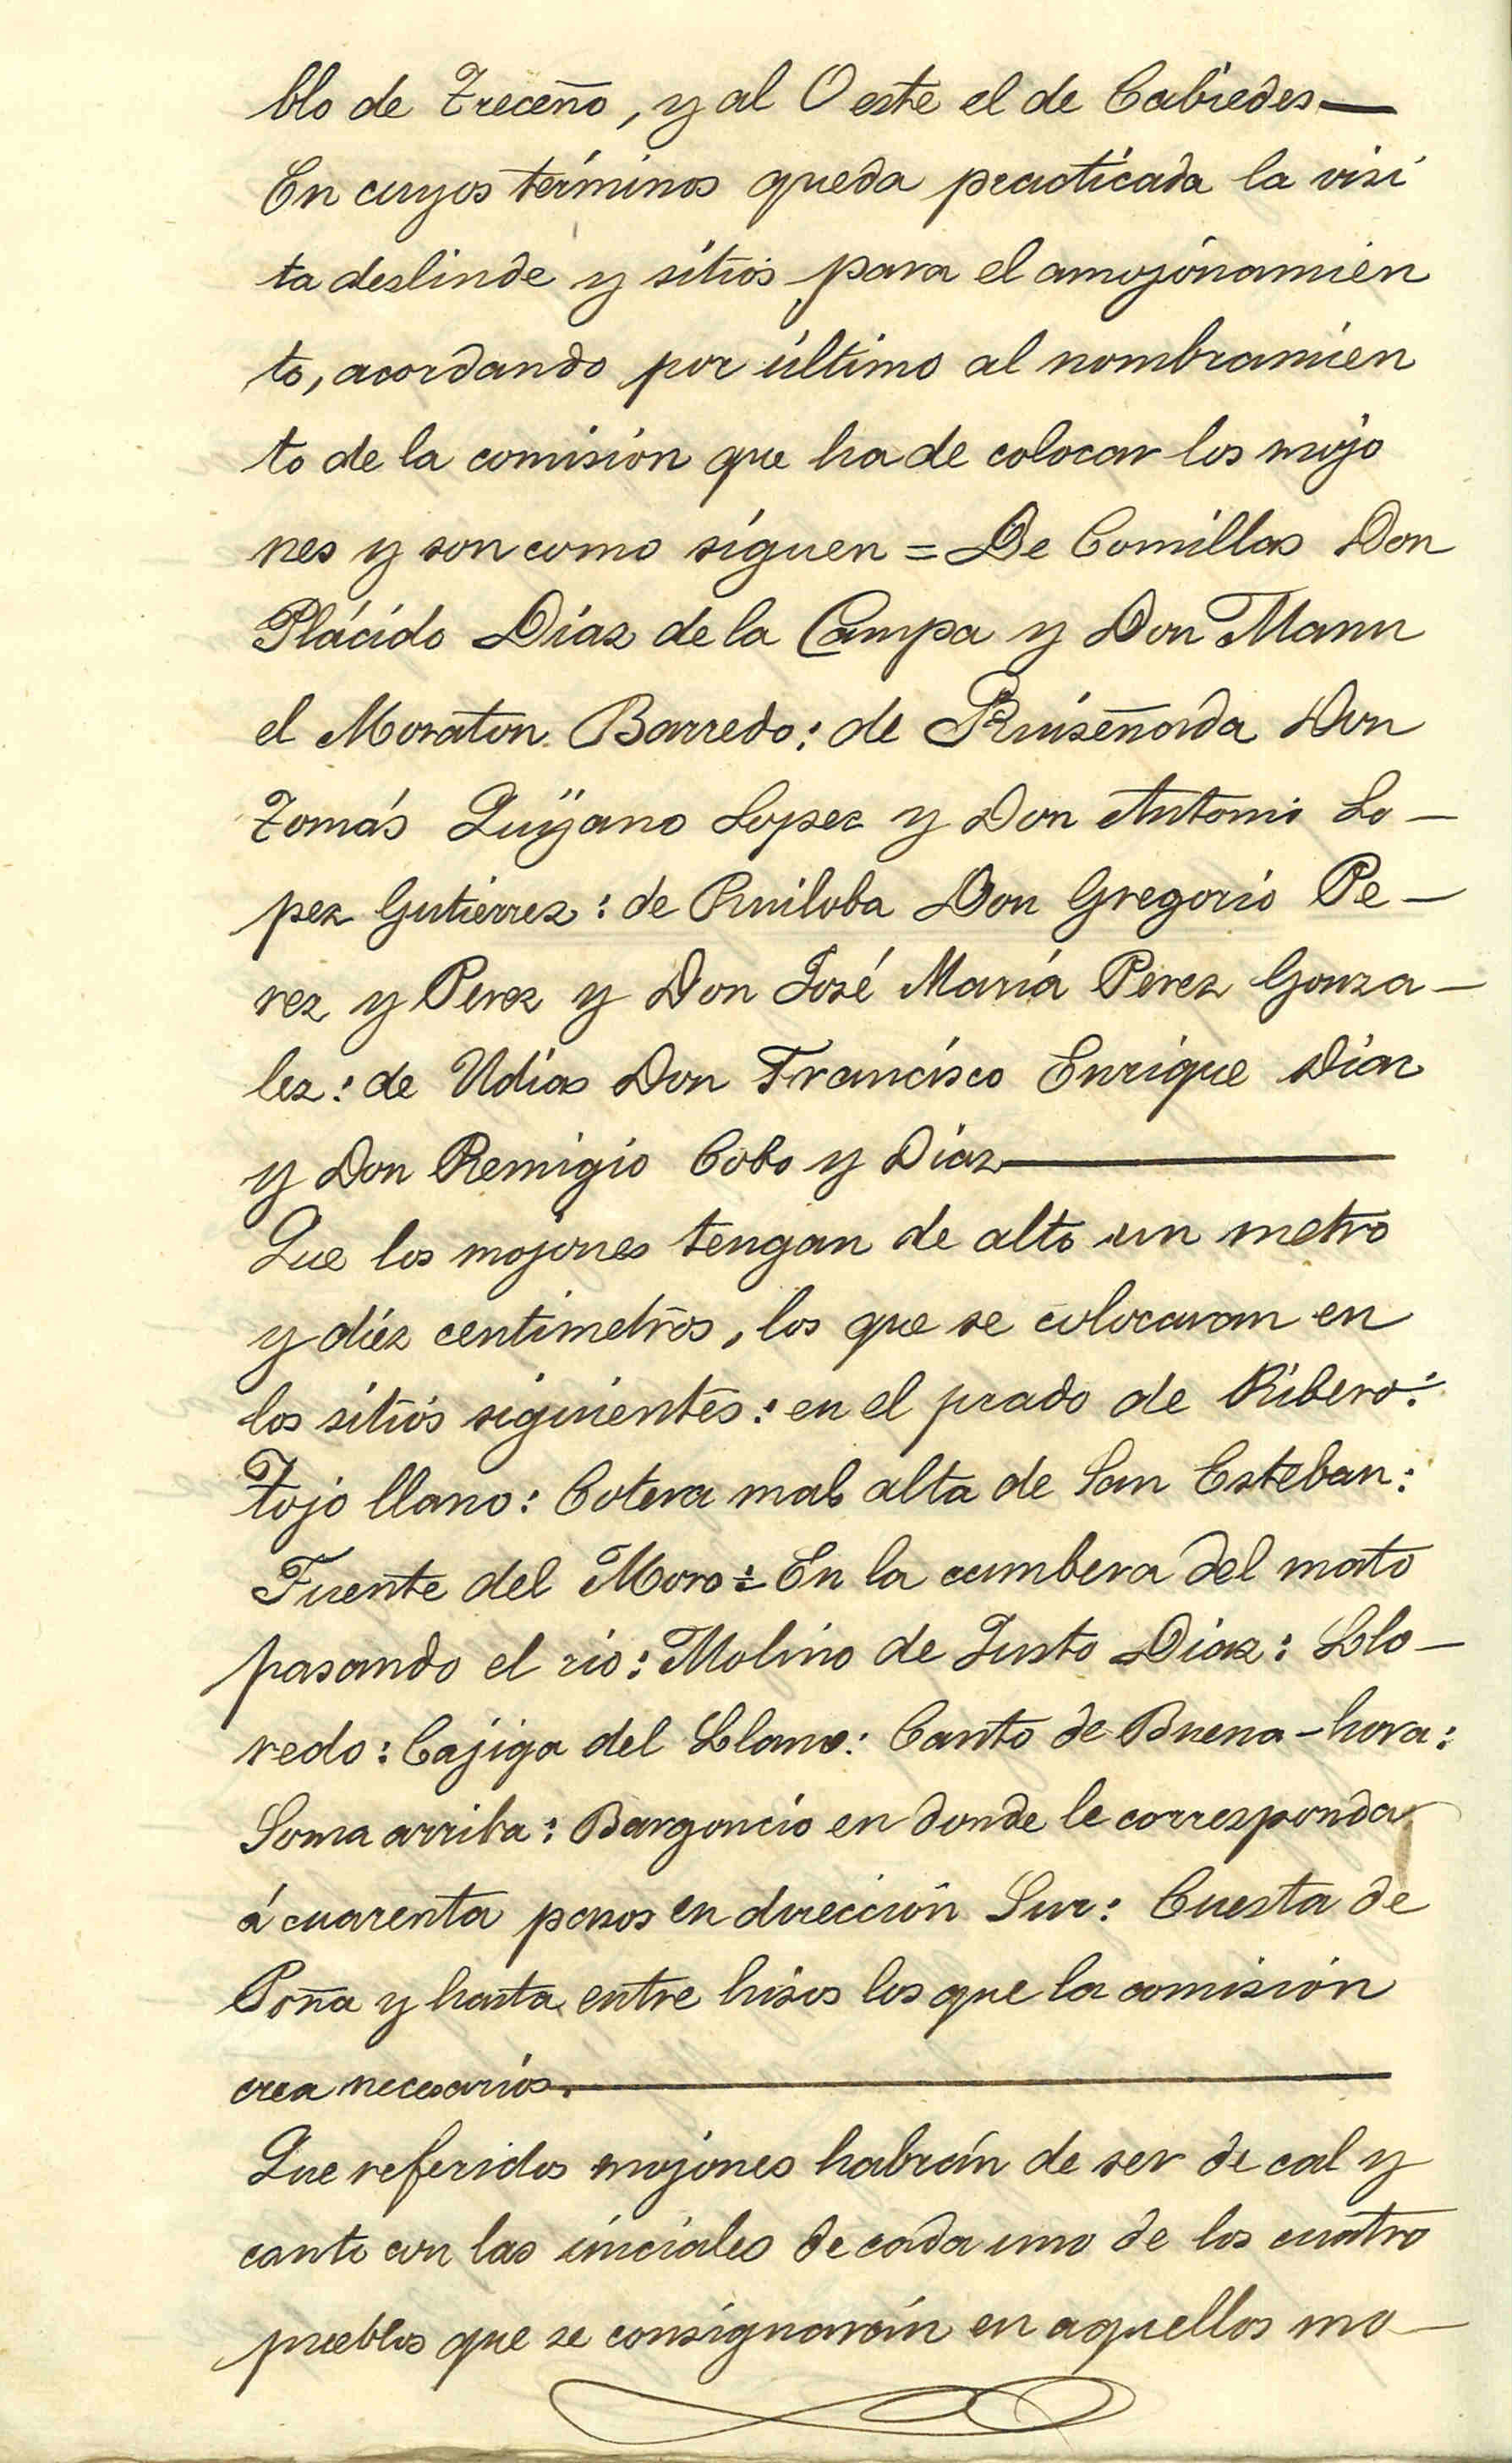 blo de Treceño, y al Oeste el de Cabiedes—
En cuyos términos queda practicada la visi
ta deslinde y sitios para el amojonamien
to, acordando por último al nombramien
to de la comisión que ha de colocar los mojo
nes y son como siguen = De Comillas Don
Plácido Díaz de la Campa y Don Manu
el Moraton Barredo: de Ruiseñada Don
Tomás Quijano Lopez y Don Antonio Lo-
pez Gutierrez: de Ruiloba Don Gregorio Pe-
rez y Perez y Don José María Perez Gonza-
lez: de Udías Don Francisco Enrique Diaz
y Don Remigio Cobo y Diaz—
Que los mojones tengan de alto un metro
y diez centimetros, los que se colocaran en
los sitios siguientes: en el prado de Ribero:
Tojo llano: Cotera mas alta de San Esteban:
Fuente del Moro = En la cumbera del mato
pasando el rio: Molino de Justo Diaz: Llo-
redo: Cajiga del Llano: Canto de Buena-hora:
Soma arriba: Bargoncio en donde le corresponda
á cuarenta pasos en dirección Sur: Cuesta de
Poña y hasta entre hisos los que la comisión
crea necesarios.—
Que referidos mojones habrán de ser de cal y
canto con las iniciales de cada uno de los cuatro
pueblos que se consignarán en aquellos mo-